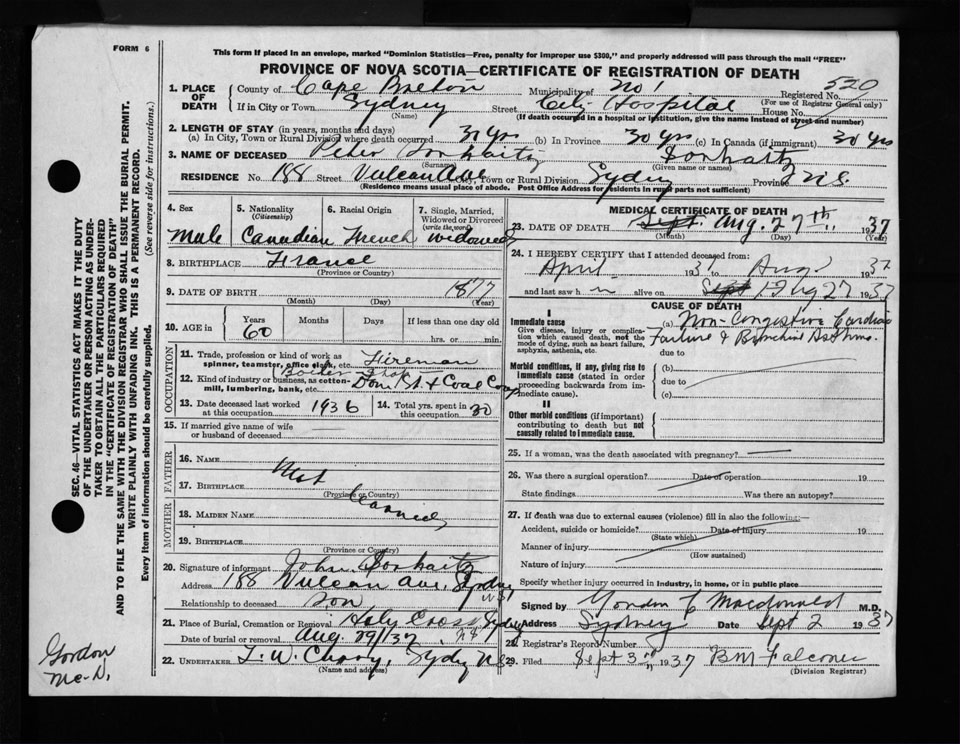 FORM 6
This form if placed in an envelope, marked "Dominion Statistics—Free, penalty for improper use $300," and properly addressed will pass through the mail "FREE"
PROVINCE OF NOVA SCOTIA—CERTIFICATE OF REGISTRATION OF DEATH
1. PLACE OF DEATH
County of Cape Breton Municipality of No 1 Registered No. 520
(For use of Registrar General only)
If in City or Town Sydney Street City Hospital House No.
(Name) (If death occurred in a hospital or institution, give the name instead of street and number)
2. LENGTH OF STAY (in years, months and days)
(a) In City, Town or Rural Division where death occurred 30 yrs (b) In Province 30 yrs (c) In Canada (if immigrant) 30 yrs
3. NAME OF DECEASED Peter
(Surname) (Given name or names)
RESIDENCE No. 188 Street Vulcan Ave City, Town or Rural Division Sydney Province N.S
(Residence means usual place of abode. Post Office Address for residents in rural parts not sufficient)
4. Sex Male
5. Nationality (Citizenship) Canadian
6. Racial Origin French
7. Single, Married, Widowed or Divorced (write the word) widowed
8. BIRTHPLACE France
(Province or Country)
9. DATE OF BIRTH 1877
(Month) (Day) (Year)
10. AGE in Years 60 Months Days If less than one day old
hrs. or min.
OCCUPATION
11. Trade, profession or kind of work as spinner, teamster, office clerk, etc. Fireman
12. Kind of industry or business, as cotton-mill, lumbering, bank, etc. Dom St. & Coal Corp
13. Date deceased last worked at this occupation 1936
14. Total yrs. spent in this occupation 30
15. If married give name of wife or husband of deceased
FATHER
16. NAME Not
17. BIRTHPLACE
(Province or Country)
MOTHER
18. MAIDEN NAME
19. BIRTHPLACE
(Province or Country)
20. Signature of informant John
Address 188 Vulcan Ave, Sydney N.S
Relationship to deceased son
21. Place of Burial, Cremation or Removal Holy Cross Sydney N S
Date of burial or removal Aug. 29/37
22. UNDERTAKER T. W. Sydney N S
(Name and address)
MEDICAL CERTIFICATE OF DEATH
23. DATE OF DEATH Sept. Aug. 27th 1937
(Month) (Day) (Year)
24. I HEREBY CERTIFY that I attended deceased from:
April 1931 to Aug 1937
and last saw h im alive on Sept Aug 27 1937
CAUSE OF DEATH
I
Immediate cause
Give disease, injury or complication which caused death, not the mode of dying, such as heart failure, asphyxia, asthenia, etc.
(a) Non-Congestive Cardiac
Failure & Bronchial Asthma.
due to
Morbid conditions, if any, giving rise to Immediate cause (stated in order proceeding backwards from immediate cause).
(b)
due to
(c)
II
Other morbid conditions (if important) contributing to death but not causally related to Immediate cause.
25. If a woman, was the death associated with pregnancy?
26. Was there a surgical operation? Date of operation 19
State findings Was there an autopsy?
27. If death was due to external causes (violence) fill in also the following:—
Accident, suicide or homicide? Date of injury 19
(State which)
Manner of injury
(How sustained)
Nature of injury
Specify whether injury occurred in industry, in home, or in public place
Signed by Gordon C Macdonald M.D.
Address Sydney Date Sept 2 1937
28. Registrar's Record Number
29. Filed Sept 3rd 1937 B M Falconer
(Division Registrar)
SEC. 46—VITAL STATISTICS ACT MAKES IT THE DUTY
OF THE UNDERTAKER OR PERSON ACTING AS UNDER-
TAKER TO OBTAIN ALL THE PARTICULARS REQUIRED
IN THE "CERTIFICATE OF REGISTRATION OF DEATH"
AND TO FILE THE SAME WITH THE DIVISION REGISTRAR WHO SHALL ISSUE THE BURIAL PERMIT.
WRITE PLAINLY WITH UNFADING INK. THIS IS A PERMANENT RECORD.
Every item of information should be carefully supplied. (See reverse side for instructions.)
Gordon
Mc.D,